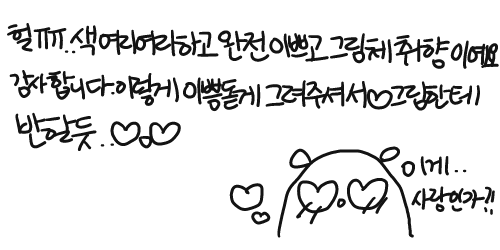 헐ㅠㅠ..색 여리여리하고 완전 이쁘고 그림체 취향이에요
감사합니다..이렇게 이쁨돋게 그려주셔서♡그림한테
반할듯..♡o♡
이게..
사랑인가?!